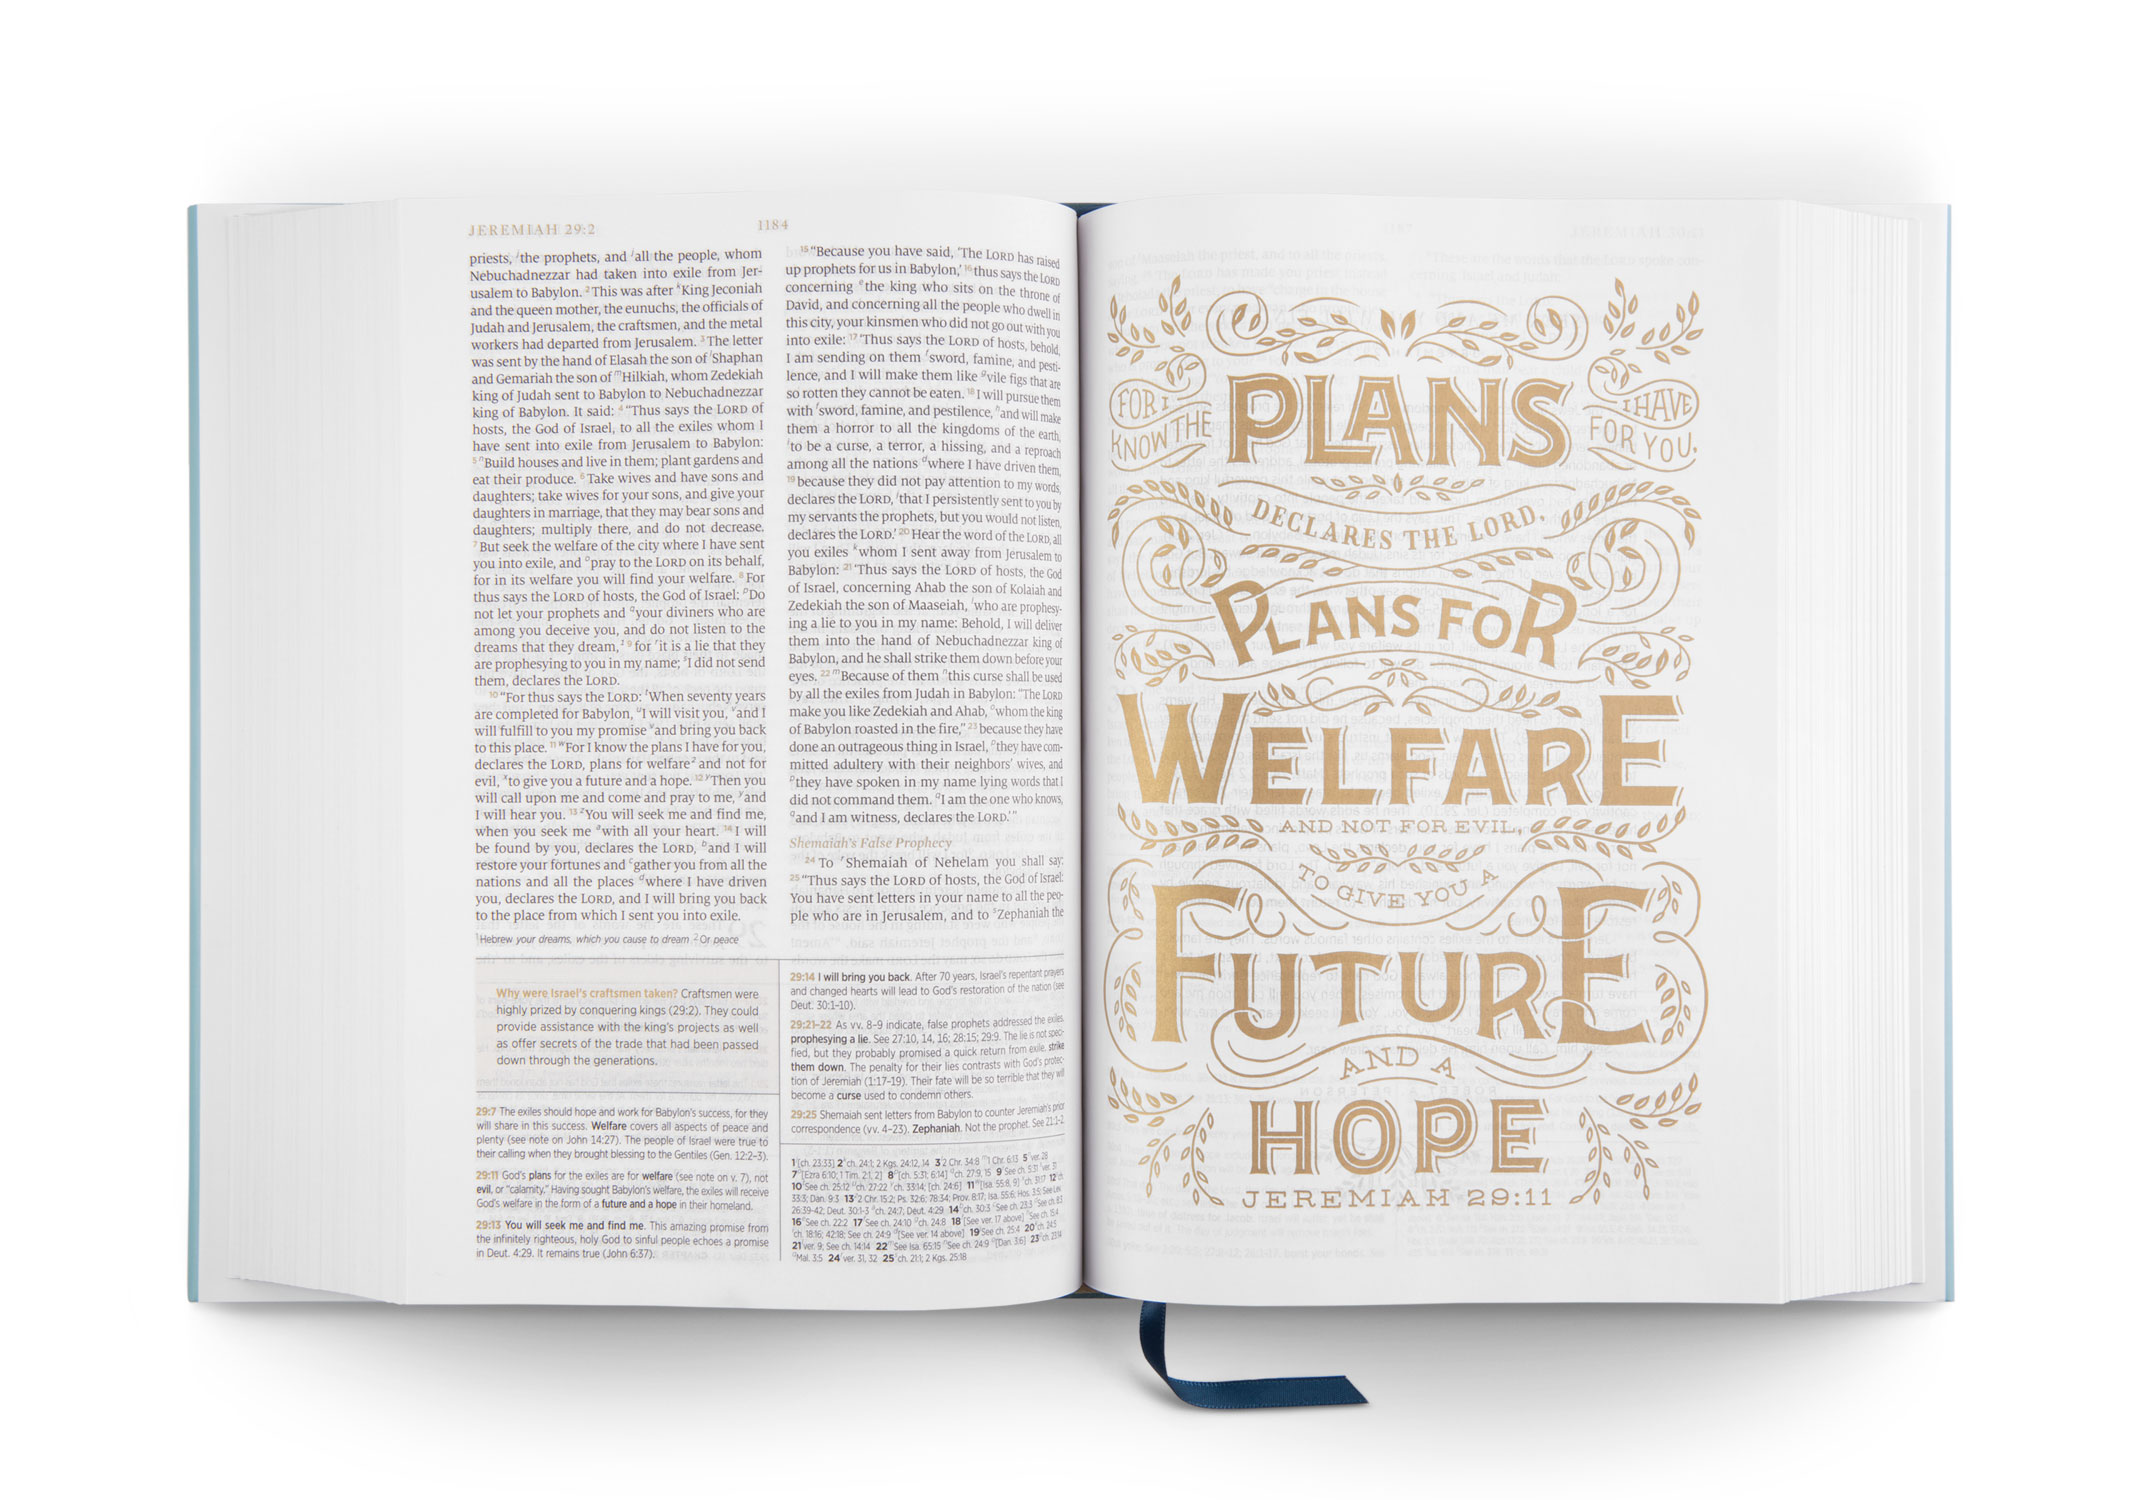 JEREMIAH 29:2
1184
priests, ithe prophets, and jall the people, whom
Nebuchadnezzar had taken into exile from Jer-
usalem to Babylon. 2 This was after kKing Jeconiah
and the queen mother, the eunuchs, the officials of
Judah and Jerusalem, the craftsmen, and the metal
workers had departed from Jerusalem. 3 The letter
was sent by the hand of Elasah the son of lShaphan
and Gemariah the son of mHilkiah, whom Zedekiah
king of Judah sent to Babylon to Nebuchadnezzar
king of Babylon. It said: 4 “Thus says the LORD of
hosts, the God of Israel, to all the exiles whom I
have sent into exile from Jerusalem to Babylon:
5 n“Build houses and live in them; plant gardens and
eat their produce. 6 Take wives and have sons and
daughters; take wives for your sons, and give your
daughters in marriage, that they may bear sons and
daughters; multiply there, and do not decrease.
7 But seek the welfare of the city where I have sent
you into exile, and opray to the LORD on its behalf,
for in its welfare you will find your welfare. 8 For
thus says the LORD of hosts, the God of Israel: pDo
not let your prophets and qyour diviners who are
among you deceive you, and do not listen to the
dreams that they dream,1 9 for rit is a lie that they
are prophesying to you in my name; sI did not send
them, declares the LORD.
10 “For thus says the LORD: tWhen seventy years
are completed for Babylon, uI will visit you, vand I
will fulfill to you my promise vand bring you back
to this place. 11 wFor I know the plans I have for you,
declares the LORD, plans for welfare2 and not for
evil, xto give you a future and a hope. 12 yThen you
will call upon me and come and pray to me, yand
I will hear you. 13 zYou will seek me and find me,
when you seek me awith all your heart. 14 I will
be found by you, declares the LORD, band I will
restore your fortunes and cgather you from all the
nations and all the places dwhere I have driven
you, declares the LORD, and I will bring you back
to the place from which I sent you into exile.
1 Hebrew your dreams, which you cause to dream 2 Or peace
15 “Because you have said, ‘The LORD has raised
up prophets for us in Babylon,’ 16 thus says the LORD
concerning ethe king who sits on the throne of
David, and concerning all the people who dwell in
this city, your kinsmen who did not go out with you
into exile: 17 ‘Thus says the LORD of hosts, behold,
I am sending on them fsword, famine, and pesti-
lence, and I will make them like gvile figs that are
so rotten they cannot be eaten. 18 I will pursue them
with fsword, famine, and pestilence, hand will make
them a horror to all the kingdoms of the earth,
ito be a curse, a terror, a hissing, and a reproach
among all the nations dwhere I have driven them,
19 because they did not pay attention to my words,
declares the LORD, jthat I persistently sent to you by
my servants the prophets, but you would not listen,
declares the LORD.’ 20 Hear the word of the LORD, all
you exiles kwhom I sent away from Jerusalem to
Babylon: 21 ‘Thus says the LORD of hosts, the God
of Israel, concerning Ahab the son of Kolaiah and
Zedekiah the son of Maaseiah, lwho are prophesy-
ing a lie to you in my name: Behold, I will deliver
them into the hand of Nebuchadnezzar king of
Babylon, and he shall strike them down before your
eyes. 22 mBecause of them nthis curse shall be used
by all the exiles from Judah in Babylon: “The LORD
make you like Zedekiah and Ahab, owhom the king
of Babylon roasted in the fire,” 23 because they have
done an outrageous thing in Israel, pthey have com-
mitted adultery with their neighbors’ wives, and
pthey have spoken in my name lying words that I
did not command them. qI am the one who knows,
qand I am witness, declares the LORD.’”
Shemaiah’s False Prophecy
24 To rShemaiah of Nehelam you shall say:
25 “Thus says the LORD of hosts, the God of Israel:
You have sent letters in your name to all the peo-
ple who are in Jerusalem, and to sZephaniah the
Why were Israel’s craftsmen taken? Craftsmen were
highly prized by conquering kings (29:2). They could
provide assistance with the king’s projects as well
as offer secrets of the trade that had been passed
down through the generations.
29:7 The exiles should hope and work for Babylon’s success, for they
will share in this success. Welfare covers all aspects of peace and
plenty (see note on John 14:27). The people of Israel were true to
their calling when they brought blessing to the Gentiles (Gen. 12:2–3).
29:11 God’s plans for the exiles are for welfare (see note on v. 7), not
evil, or “calamity.” Having sought Babylon’s welfare, the exiles will receive
God’s welfare in the form of a future and a hope in their homeland.
29:13 You will seek me and find me. This amazing promise from
the infinitely righteous, holy God to sinful people echoes a promise
in Deut. 4:29. It remains true (John 6:37).
29:14 I will bring you back. After 70 years, Israel’s repentant prayers
and changed hearts will lead to God’s restoration of the nation (see
Deut. 30:1–10).
29:21–22 As vv. 8–9 indicate, false prophets addressed the exiles,
prophesying a lie. See 27:10, 14, 16; 28:15; 29:9. The lie is not spec-
ified, but they probably promised a quick return from exile. strike
them down. The penalty for their lies contrasts with God’s protec-
tion of Jeremiah (1:17–19). Their fate will be so terrible that they will
become a curse used to condemn others.
29:25 Shemaiah sent letters from Babylon to counter Jeremiah’s prior
correspondence (vv. 4–23). Zephaniah. Not the prophet. See 21:1–2.
FOR I
KNOW THE
PLANS
I HAVE
FOR YOU,
DECLARES THE LORD,
PLANS FOR
WELFARE
AND NOT FOR EVIL,
TO GIVE YOU A
FUTURE
AND A
HOPE
JEREMIAH 29:11